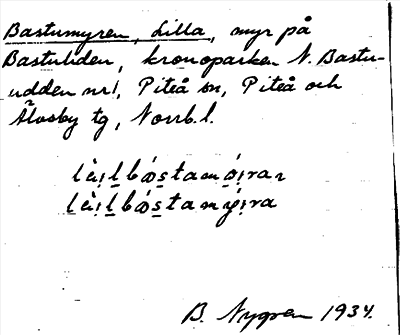 Bastumyren, Lilla, myr på
Bastuliden, kronoparken N. Bastu-
udden nr 1, Piteå sn, Piteå och
Älvsby tg, Norrb. l.
B. Nygren 1934.